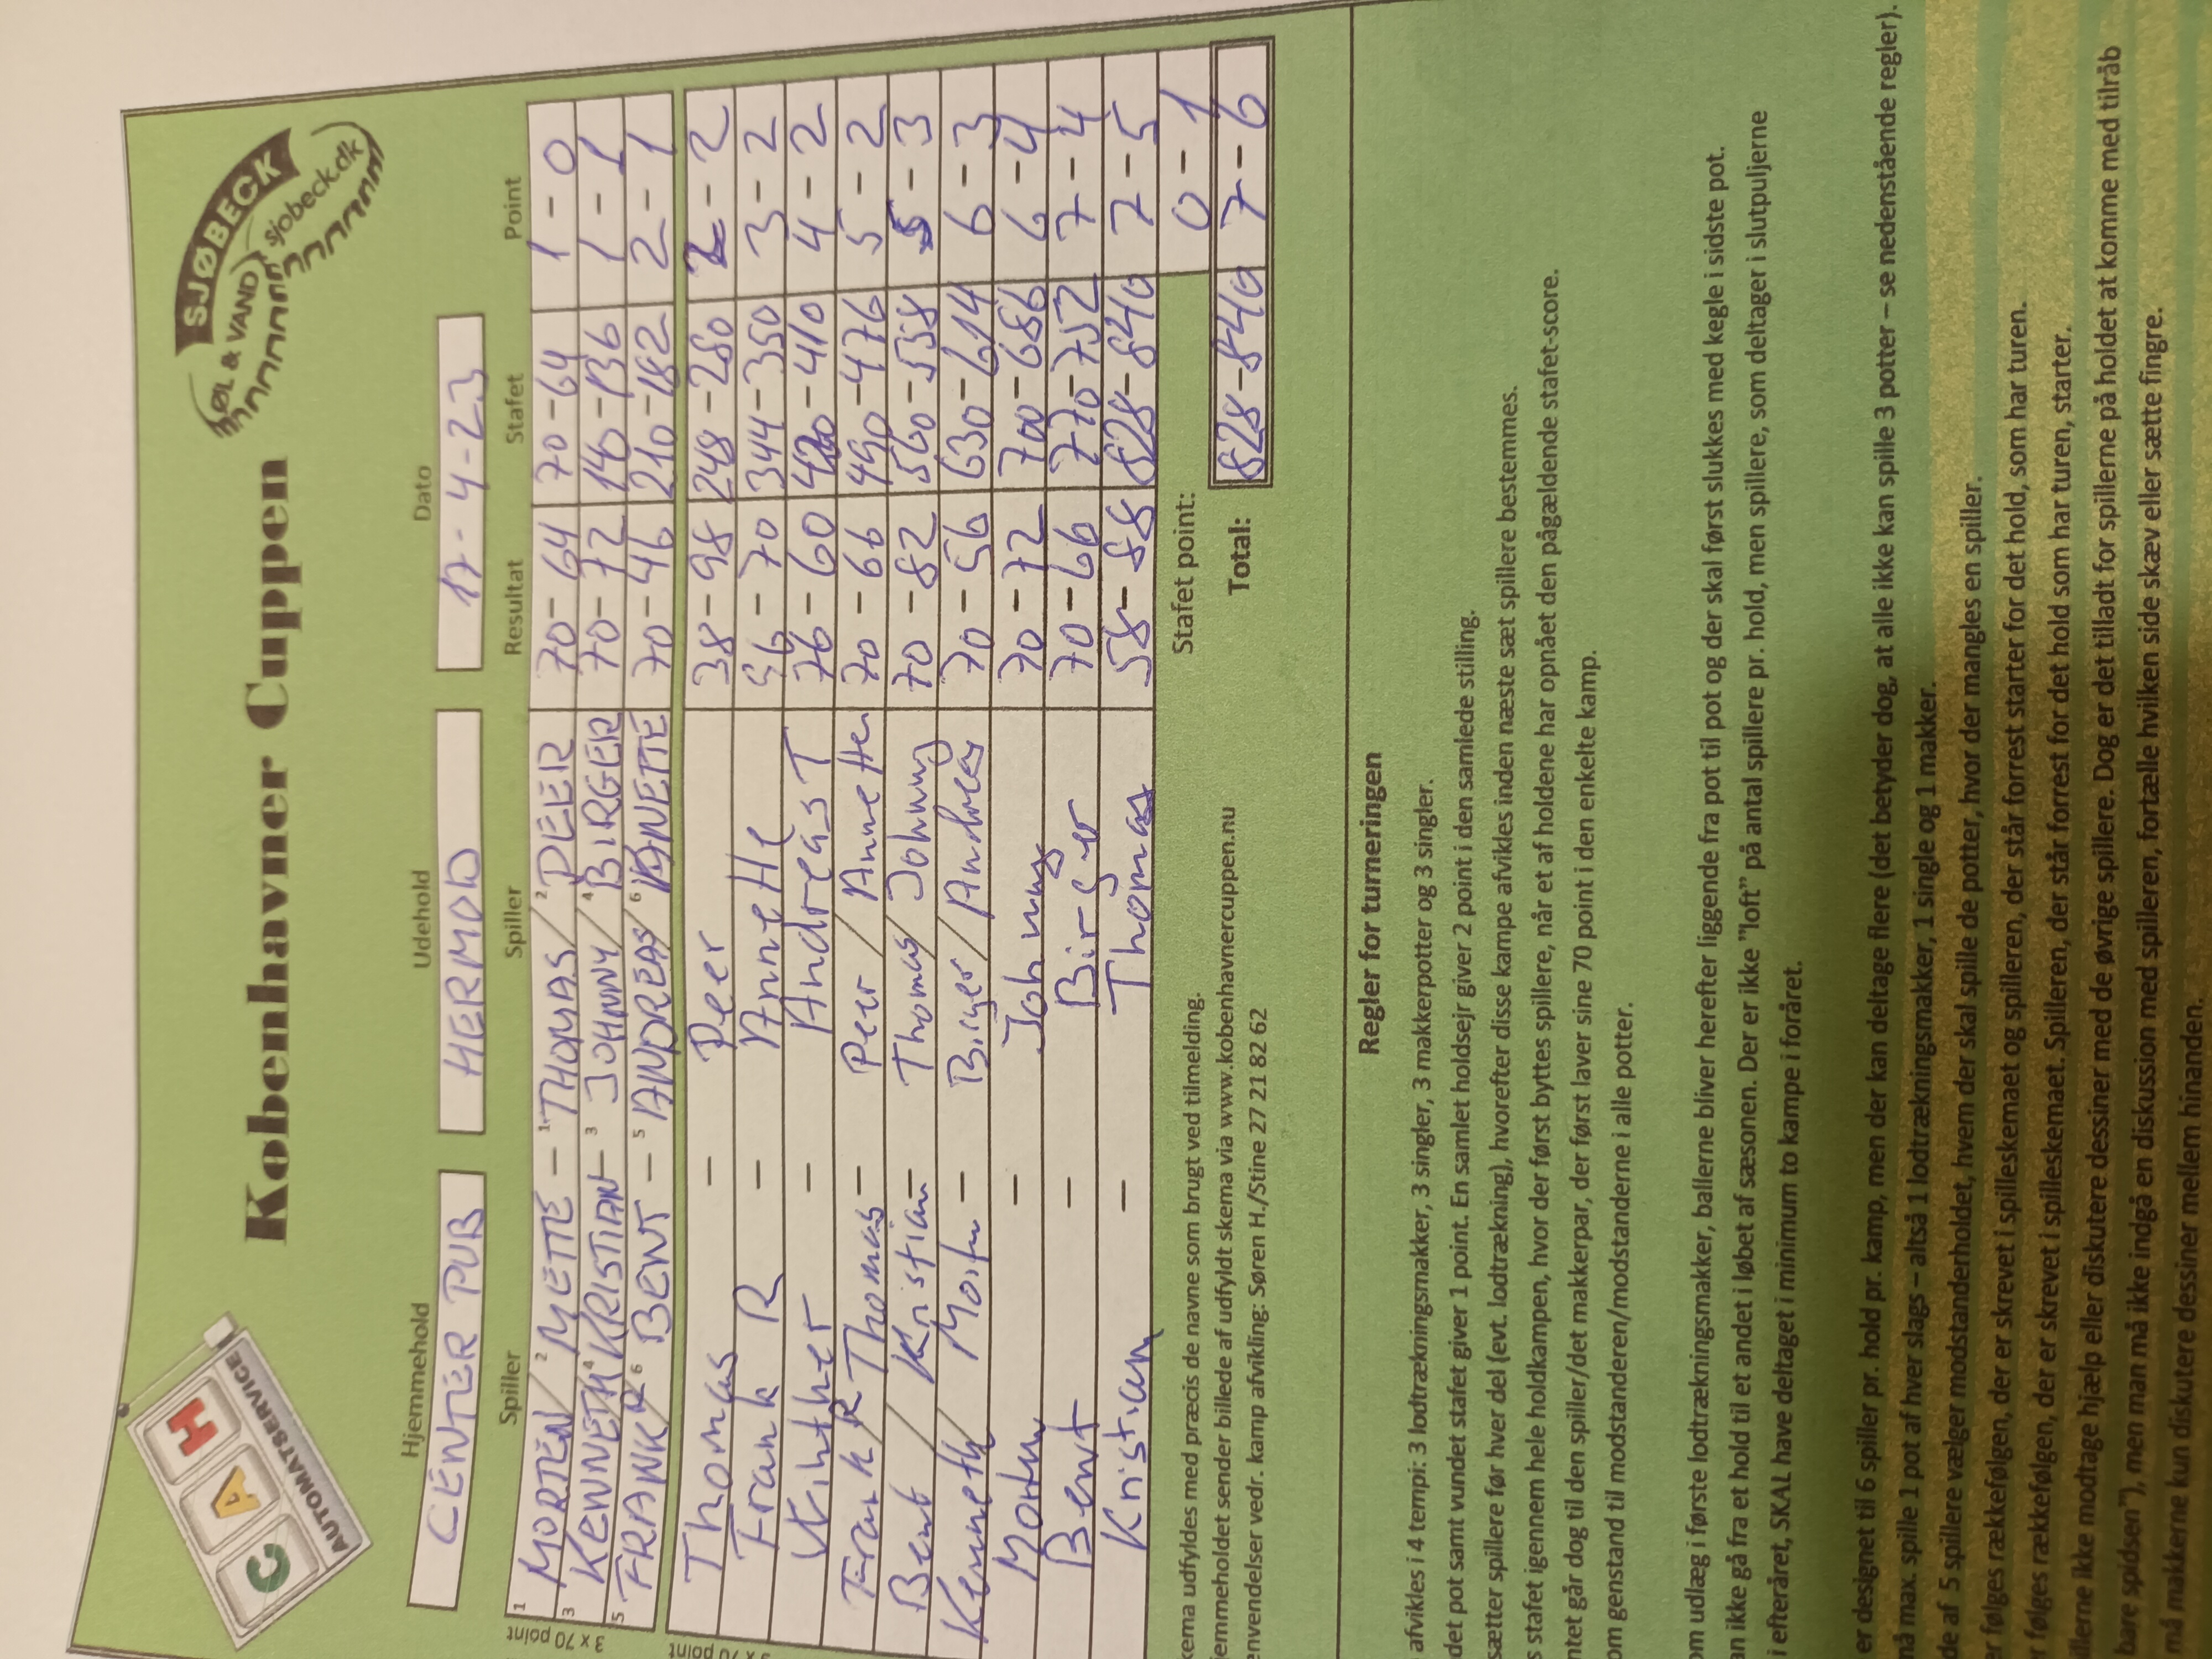 C A H
AUTOMATSERVICE
Københavner Cuppen
SJØBECK
ØL & VAND
sjobeck.dk
Hjemmehold Udehold Dato
CENTER PUB HERMOD 17-4-23
Spiller Spiller Resultat Stafet Point
3 x 70 point
1 MORTEN / 2 METTE - 1 THOMAS / 2 PEER 70-64 70-64 1-0
3 KENNETH / 4 KRISTIAN - 3 JOHNNY / 4 BIRGER 70-72 140-136 1-1
5 FRANK R / 6 BENT - 5 ANDREAS / 6 ANNETTE 70-46 210-182 2-1
Thomas - Peer 38-98 248-280 2-2
Frank R - Annette 96-70 344-350 3-2
Vinther - Andreas T 76-60 420-410 4-2
Frank R / Thomas - Peer / Annette 70-66 490-476 5-2
Bent / Kristian - Thomas / Johnny 70-82 560-558 5-3
Kenneth / Morten - Birger / Andreas 70-56 630-614 6-3
Morten - Johnny 70-72 700-686 6-4
Bent - Birger 70-66 770-752 7-4
Kristian - Thomas 58-88 828-840 7-5
Stafet point: 0-1
Total: 828-840 7-6
kema udfyldes med præcis de navne som brugt ved tilmelding.
jemmeholdet sender billede af udfyldt skema via www.kobenhavnercuppen.nu
envendelser vedr. kamp afvikling: Søren H./Stine 27 21 82 62
Regler for turneringen
afvikles i 4 tempi: 3 lodtrækningsmakker, 3 singler, 3 makkerpotter og 3 singler.
det pot samt vundet stafet giver 1 point. En samlet holdsejr giver 2 point i den samlede stilling.
sætter spillere før hver del (evt. lodtrækning), hvorefter disse kampe afvikles inden næste sæt spillere bestemmes.
s stafet igennem hele holdkampen, hvor der først byttes spillere, når et af holdene har opnået den pågældende stafet-score.
ntet går dog til den spiller/det makkerpar, der først laver sine 70 point i den enkelte kamp.
om genstand til modstanderen/modstanderne i alle potter.
om udlæg i første lodtrækningsmakker, ballerne bliver herefter liggende fra pot til pot og der skal først slukkes med kegle i sidste pot.
an ikke gå fra et hold til et andet i løbet af sæsonen. Der er ikke ”loft” på antal spillere pr. hold, men spillere, som deltager i slutpuljerne
i efteråret, SKAL have deltaget i minimum to kampe i foråret.
er designet til 6 spiller pr. hold pr. kamp, men der kan deltage flere (det betyder dog, at alle ikke kan spille 3 potter – se nedenstående regler).
må max. spille 1 pot af hver slags – altså 1 lodtrækningsmakker, 1 single og 1 makker.
de af 5 spillere vælger modstanderholdet, hvem der skal spille de potter, hvor der mangles en spiller.
r følges rækkefølgen, der er skrevet i spilleskemaet og spilleren, der står forrest starter for det hold, som har turen.
r følges rækkefølgen, der er skrevet i spilleskemaet. Spilleren, der står forrest for det hold som har turen, starter.
illerne ikke modtage hjælp eller diskutere dessiner med de øvrige spillere. Dog er det tilladt for spillerne på holdet at komme med tilråb
bare spidsen”), men man må ikke indgå en diskussion med spilleren, fortælle hvilken side skæv eller sætte fingre.
må makkerne kun diskutere dessiner mellem hinanden.